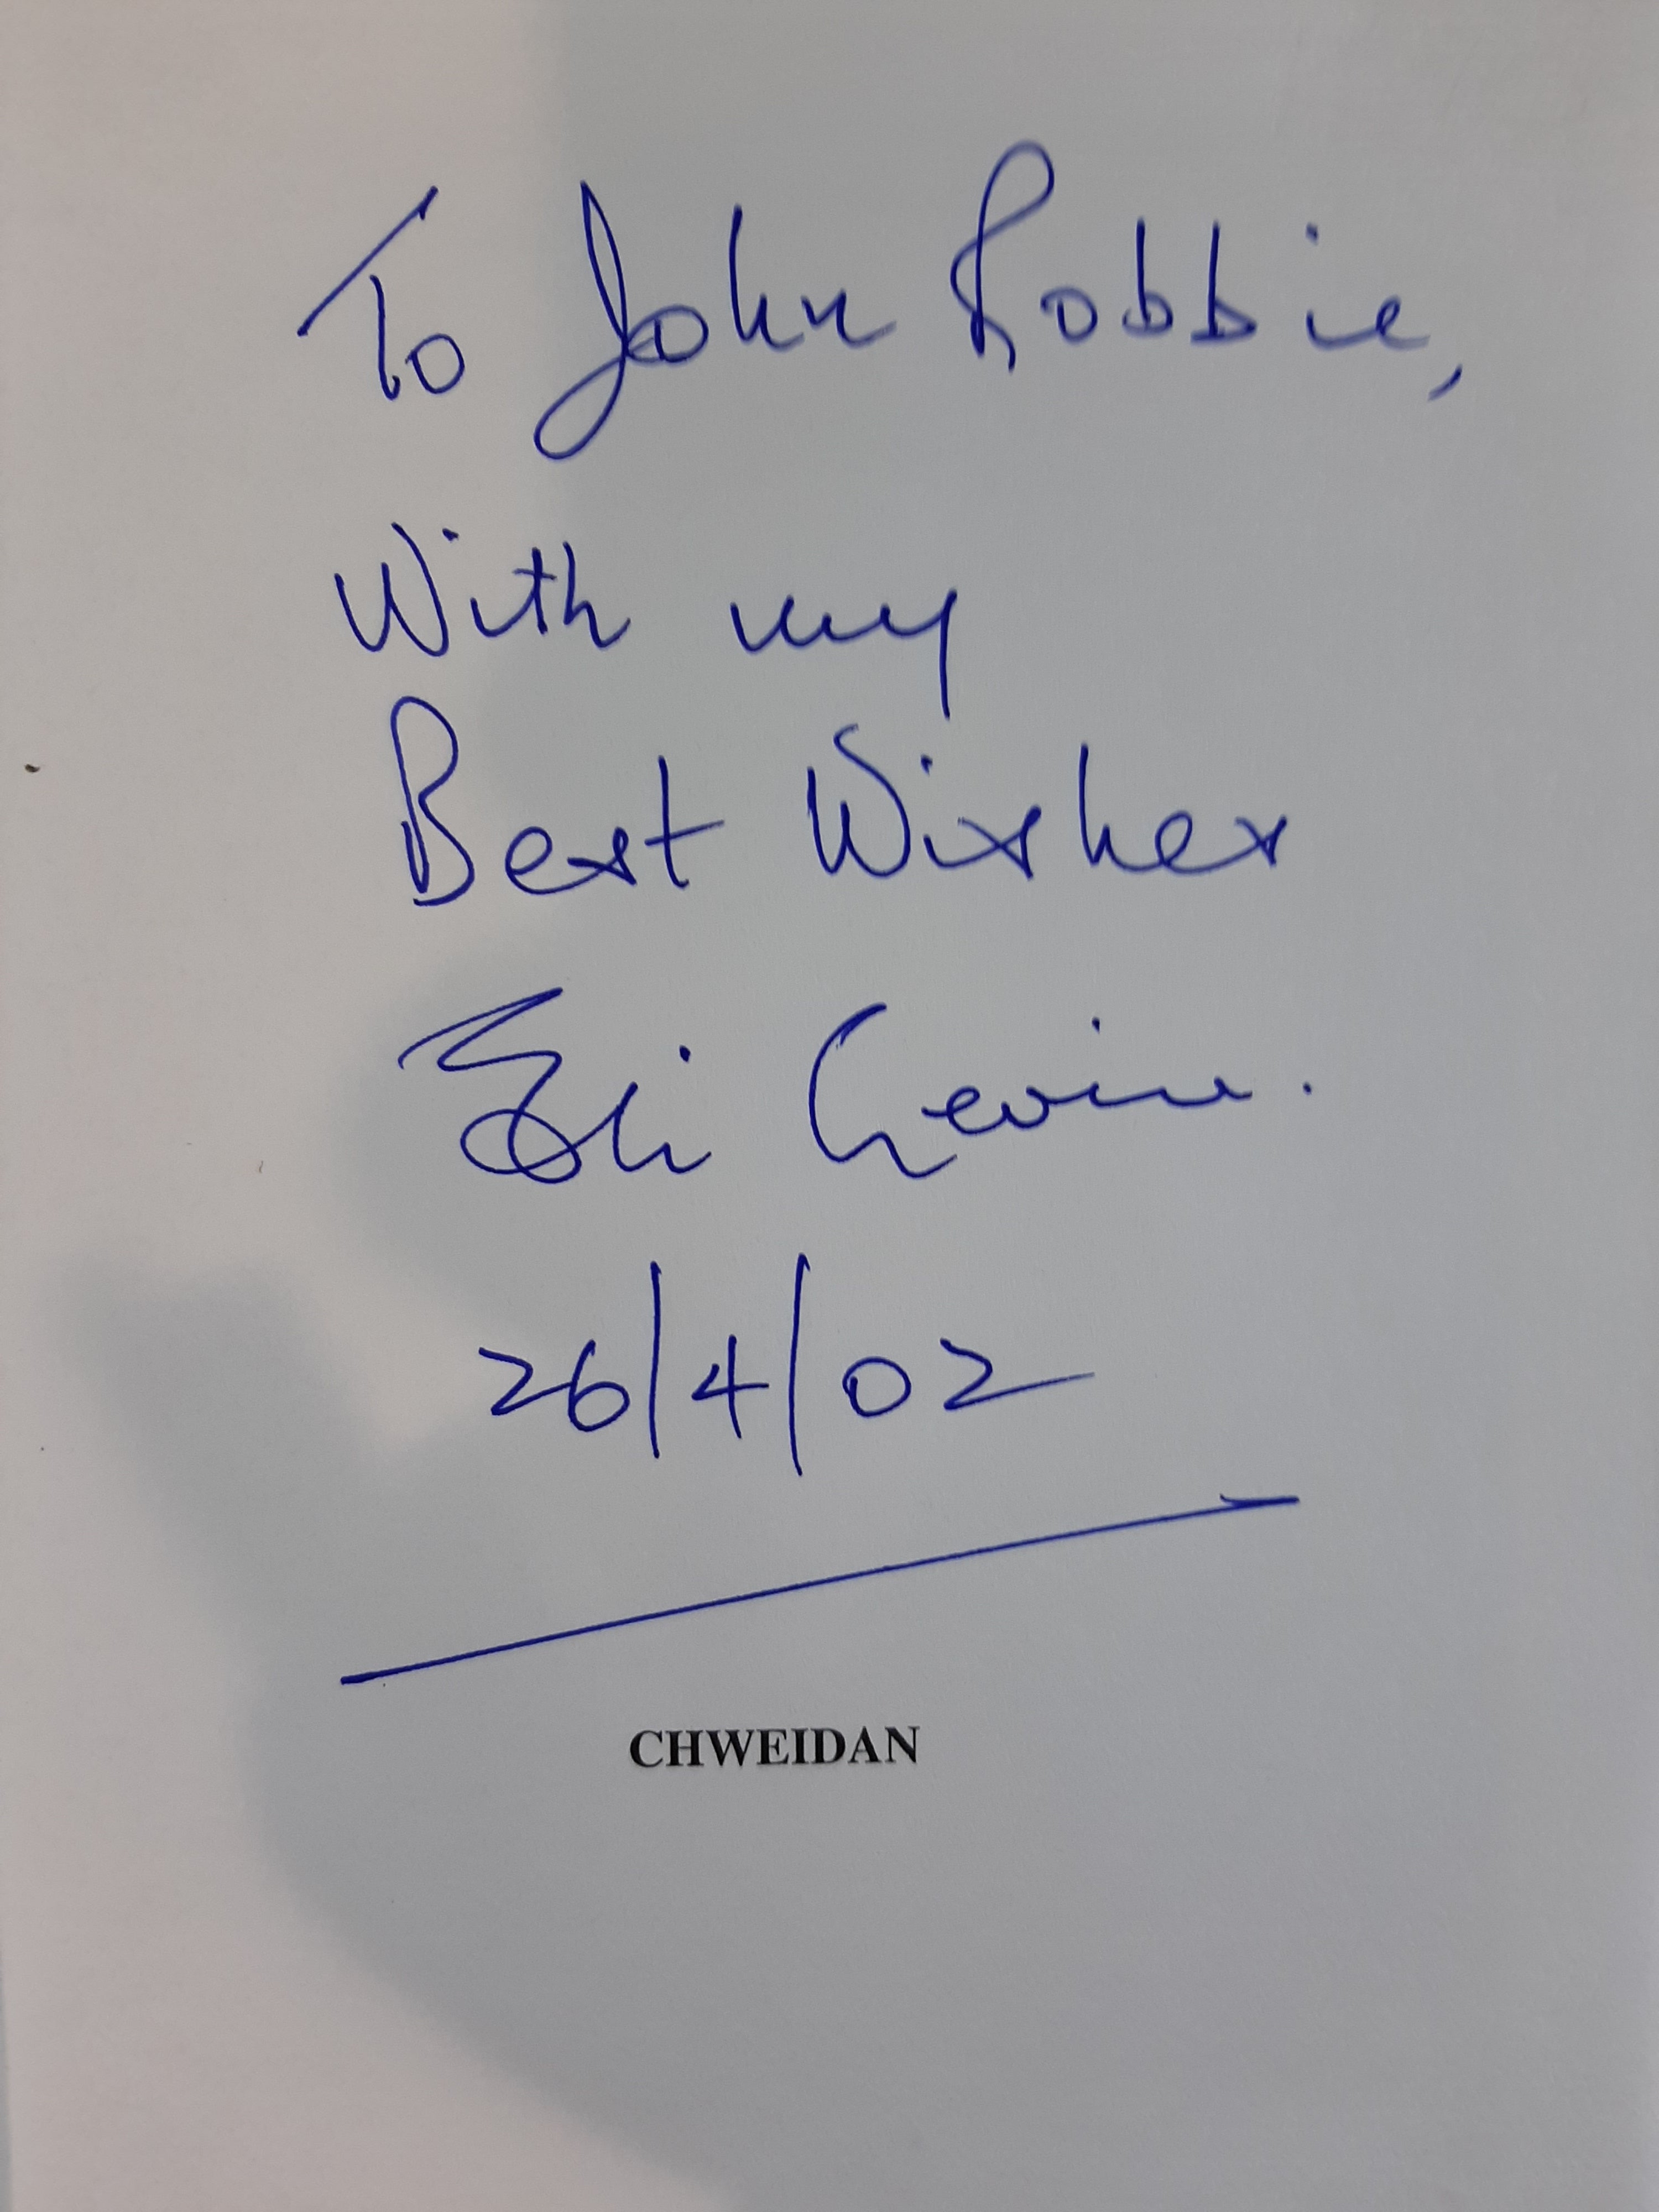 To John Robbie,
With my
Best Wishes
Eli Levine.
26/4/02
CHWEIDAN